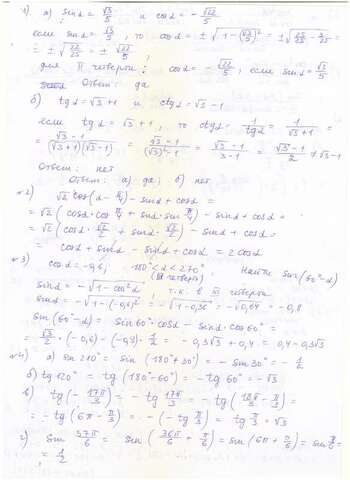 1) а) sin α = √3/5 и cos α = -√22/5
если sin α = √3/5, то cos α = ± √(1-(√3/5)²) = ± √(25/25 - 3/25) =
= ± √(22/25) = ± √22/5,
для II четверти: cos α = -√22/5, если sin α = √3/5
Ответ: да
б) tg α = √3+1 и ctg α = √3-1
если tg α = √3+1, то ctg α = 1/tg α = 1/(√3+1) =
= (√3-1)/((√3+1)(√3-1)) = (√3-1)/((√3)²-1) = (√3-1)/(3-1) = (√3-1)/2 ≠ √3-1
Ответ: нет
Ответ: а) да; б) нет
№2) √2 cos(α-π/4) - sin α + cos α =
= √2 (cos α · cos π/4 + sin α · sin π/4) - sin α + cos α =
= √2 (cos α · √2/2 + sin α · √2/2) - sin α + cos α =
= cos α + sin α - sin α + cos α = 2 cos α
№3) cos α = -0,6, 180° < α < 270° Найти sin(60°-α)
(III четверть)
sin α = -√(1-cos²α) т.к. в III четверти
sin α = -√(1-(-0,6)²) = -√(1-0,36) = -√0,64 = -0,8
sin(60°-α) = sin 60° · cos α - sin α · cos 60° =
= √3/2 · (-0,6) - (-0,8) · 1/2 = -0,3√3 + 0,4 = 0,4-0,3√3
№4) а) sin 210° = sin (180°+30°) = -sin 30° = -1/2
б) tg 120° = tg (180°-60°) = -tg 60° = -√3
в) tg (-17π/3) = -tg 17π/3 = -tg (18π/3 - π/3) =
= -tg (6π - π/3) = -(-tg π/3) = tg π/3 = √3
г) sin 37π/6 = sin (36π/6 + π/6) = sin (6π + π/6) = sin π/6 =
= 1/2